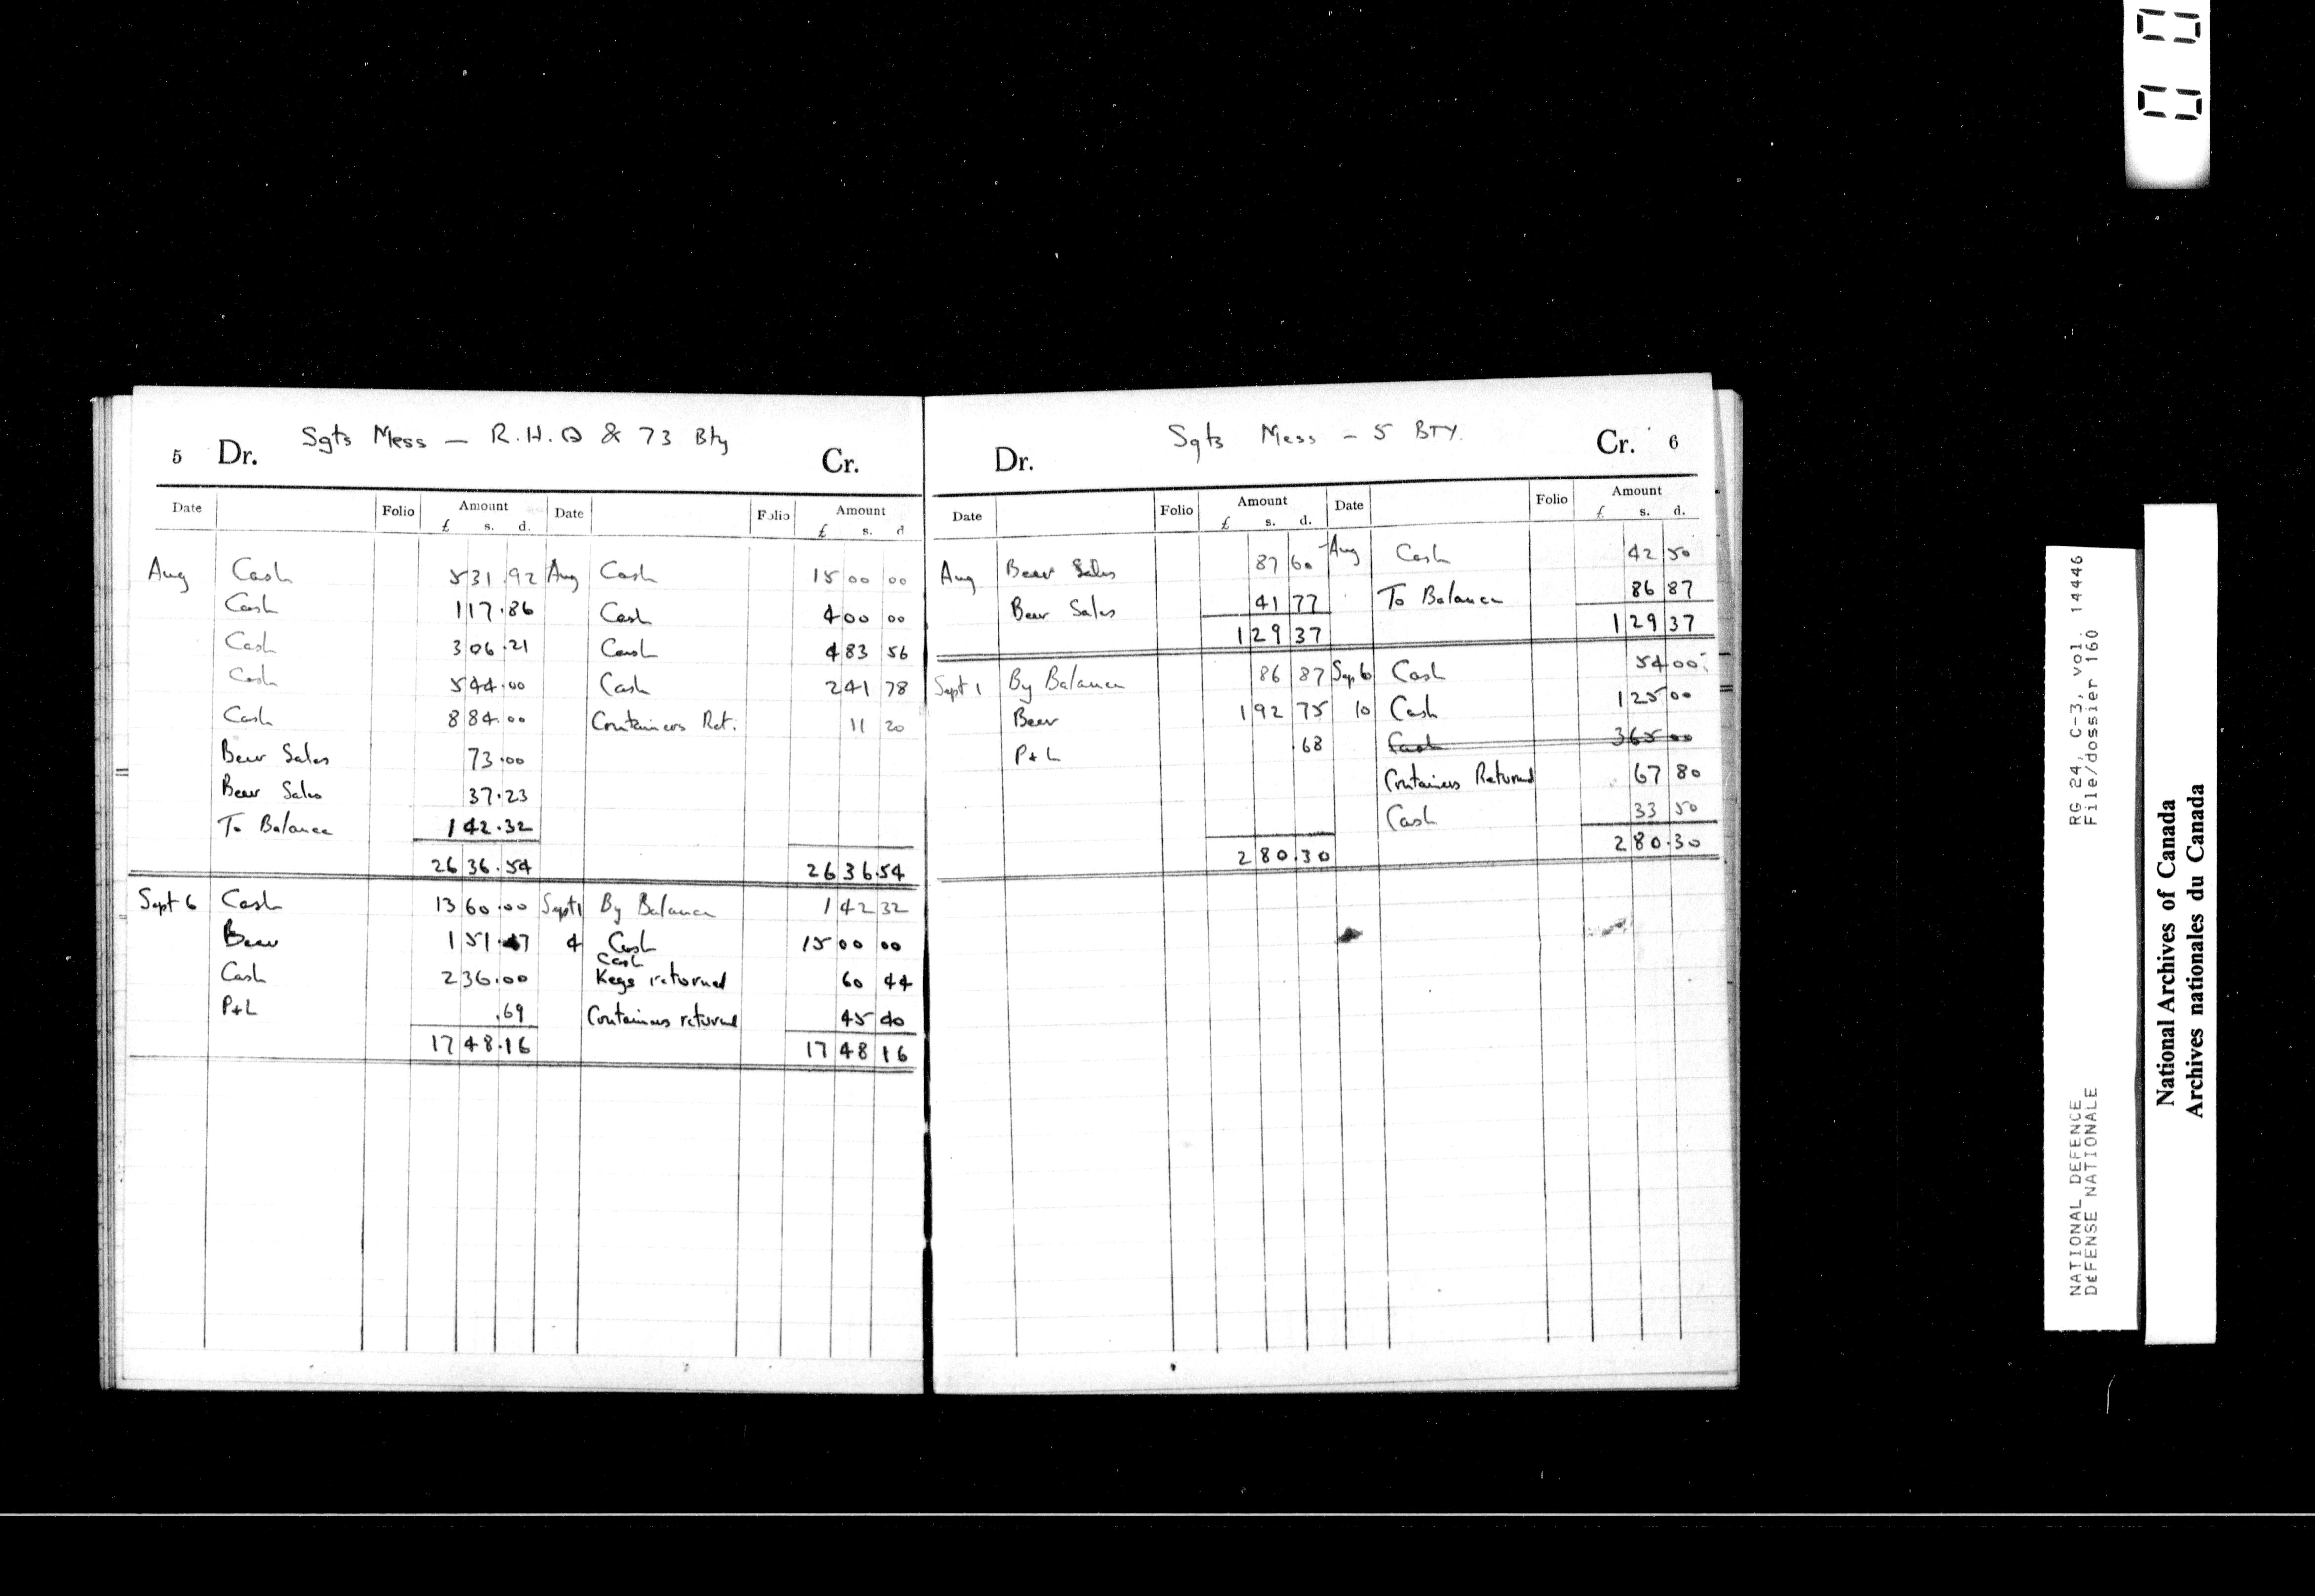 5 Dr. Sgts Mess — R.H.Q & 73 Bty Cr.
Date Folio Amount Date Folio Amount
£ s. d. £ s. d
Aug Cash 531.92 Aug Cash 1500 00
Cash 117.86 Cash 400 00
Cash 306.21 Cash 483 56
Cash 544.00 Cash 241 78
Cash 884.00 Containers Ret. 11 20
Beer Sales 73.00
Beer Sales 37.23
To Balance 142.32
2636.54 2636.54
Sept 6 Cash 1360.00 Sept 1 By Balance 142 32
Beer 151.47 4 Cash 1500 00
Cash
Cash 236.00 Kegs returned 60 44
P+L .69 Containers returned 45 40
1748.16 1748 16
Dr. Sgts Mess — 5 BTY. Cr. 6
Date Folio Amount Date Folio Amount
£ s. d. £ s. d.
Aug Beer Sales 87 60 Aug Cash 42 50
Beer Sales 41 77 To Balance 86 87
129 37 129 37
Sept 1 By Balance 86 87 Sep 6 Cash 54 00
Beer 192 75 10 Cash 125 00
P+L .68 Cash 365 00
Containers Returned 67 80
Cash 33 50
280.30 280.30
RG 24, C-3, vol. 14446
File/dossier 160
NATIONAL DEFENCE
DÉFENSE NATIONALE
National Archives of Canada
Archives nationales du Canada